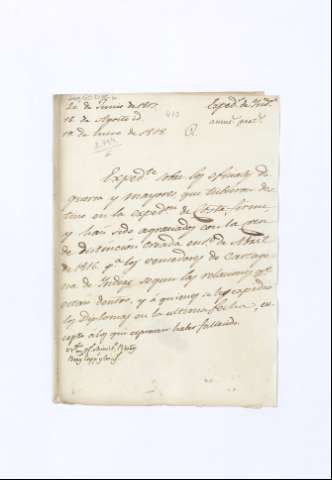 24 de Junio de 1817.
16 de Agosto id.
1º de Enero de 1818
Exped.te sobre los oficiales de
guerra y mayores que tubieron des
tino en la exped.on de Costa firme
y han sido agraciados con la cruz
de distincion creada en 1º de Abril
de 1816. p.a los vencedores de Cartage
na de Indias segun las relaciones que
estan dentro, y a quienes se les expidieron
los Diplomas en la ultima fecha, ex
cepto a los que expresan haber fallecido.